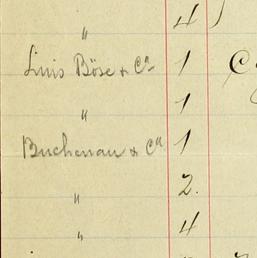 " 4
Luis Böse & Cª 1
" 1
Buchenau & Cª 1
" 2.
" 4